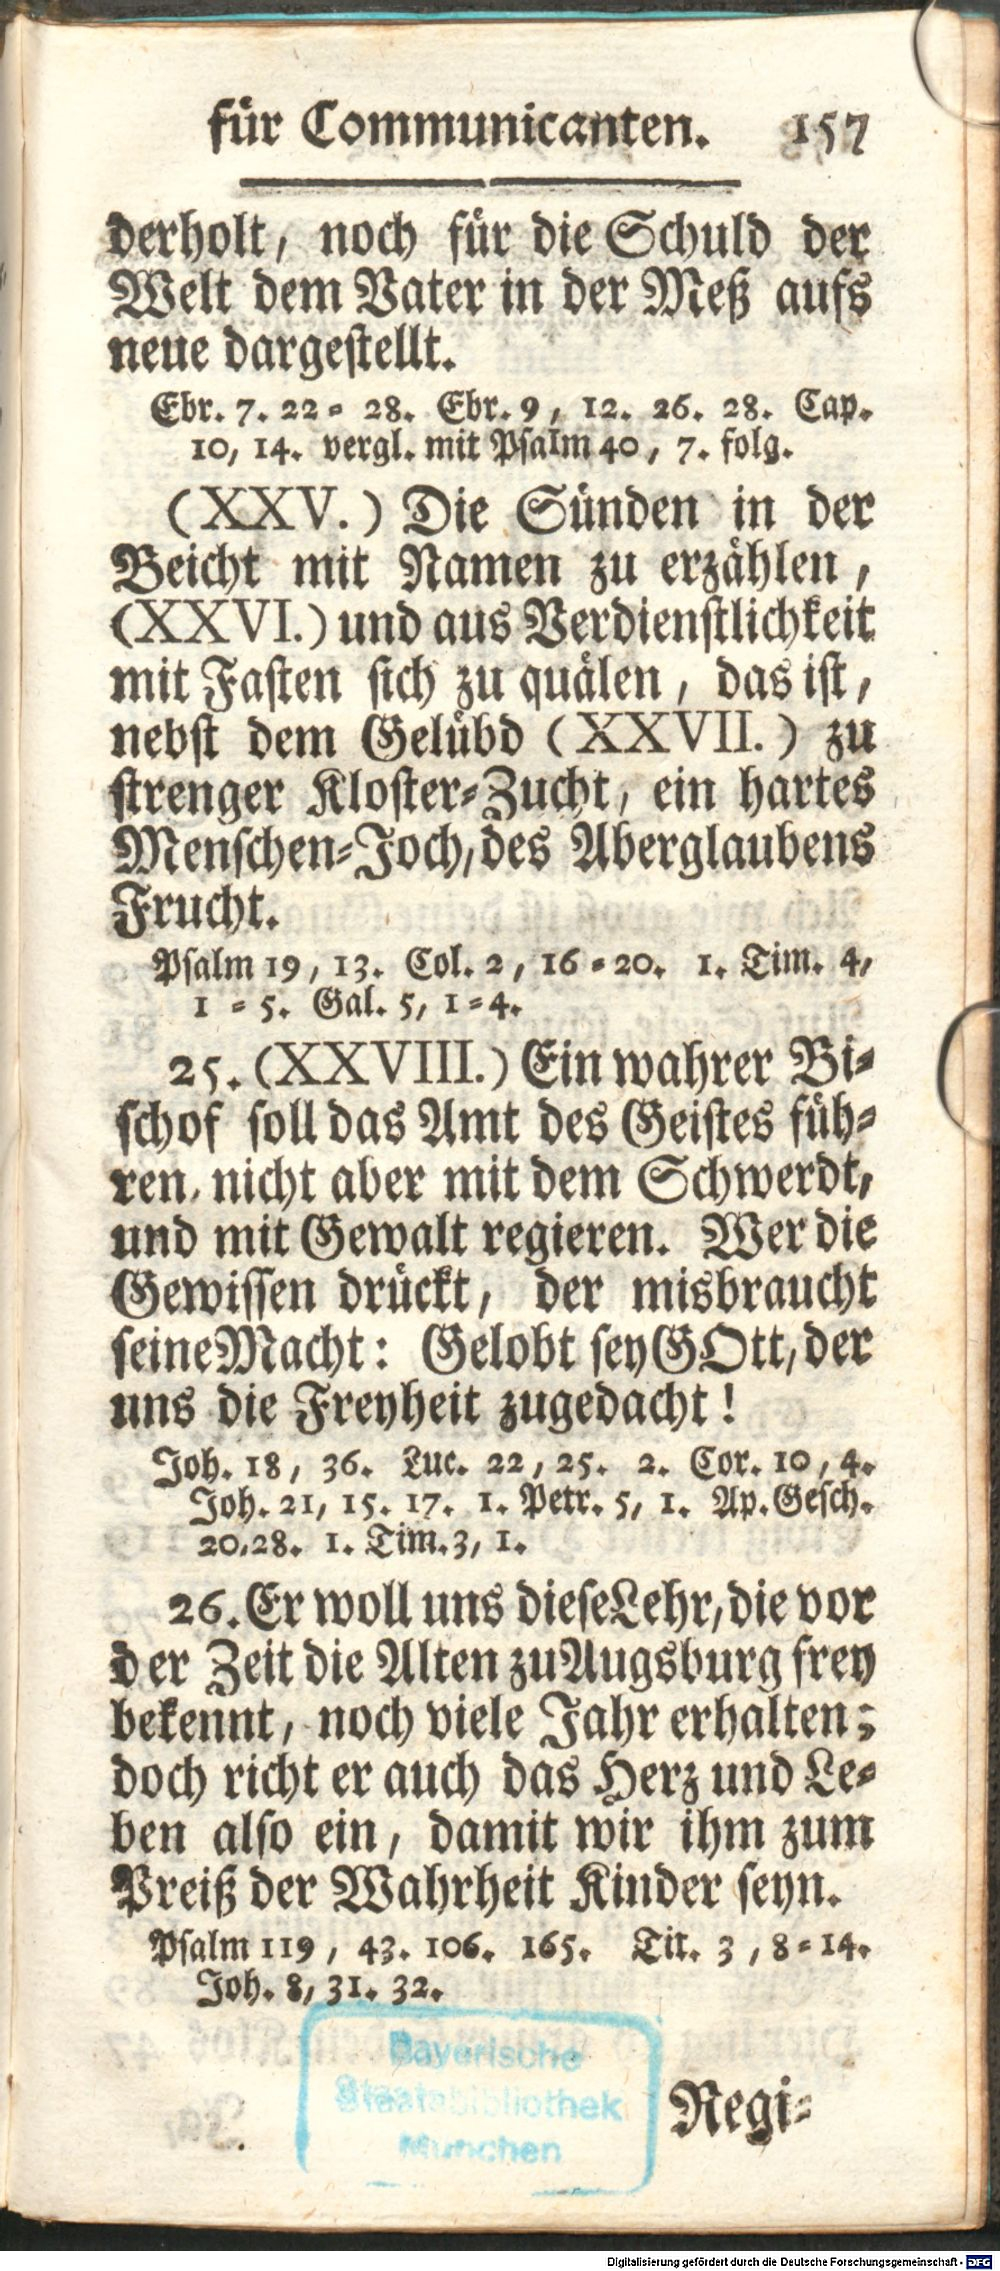 für Communicanten. 157
derholt, noch für die Schuld der
Welt dem Vater in der Meß aufs
neue dargestellt.
Ebr. 7. 22 = 28. Ebr. 9, 12. 26. 28. Cap.
10, 14. vergl. mit Psalm 40, 7. folg.
(XXV.) Die Sünden in der
Beicht mit Namen zu erzählen,
(XXVI.) und aus Verdienstlichkeit
mit Fasten sich zu quälen, das ist,
nebst dem Gelübd (XXVII.) zu
strenger Kloster=Zucht, ein hartes
Menschen=Joch, des Aberglaubens
Frucht.
Psalm 19, 13. Col. 2, 16 = 20. 1. Tim. 4,
1 = 5. Gal. 5, 1 = 4.
25. (XXVIII.) Ein wahrer Bi=
schof soll das Amt des Geistes füh=
ren, nicht aber mit dem Schwerdt,
und mit Gewalt regieren. Wer die
Gewissen drückt, der misbraucht
seine Macht: Gelobt sey GOtt, der
uns die Freyheit zugedacht!
Joh. 18, 36. Luc. 22, 25. 2. Cor. 10, 4.
Joh. 21, 15. 17. 1. Petr. 5, 1. Ap. Gesch.
20, 28. 1. Tim. 3, 1.
26. Er woll uns diese Lehr, die vor
der Zeit die Alten zu Augsburg frey
bekennt, noch viele Jahr erhalten;
doch richt er auch das Herz und Le=
ben also ein, damit wir ihm zum
Preiß der Wahrheit Kinder seyn.
Psalm 119, 43. 106. 165. Tit. 3, 8 = 14.
Joh. 8, 31. 32.
Bayerische
Staatsbibliothek
München
Regi=
Digitalisierung gefördert durch die Deutsche Forschungsgemeinschaft - DFG